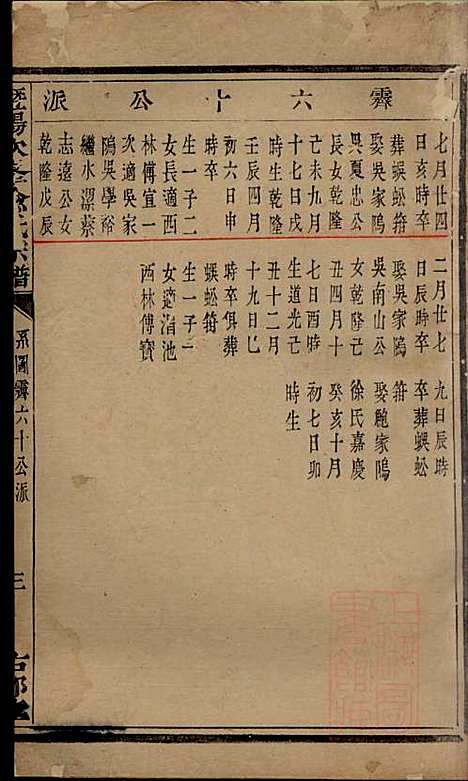 霽六十公派
七月廿四
日亥時卒
葬蜈蚣箝
娶吳家隖
吳夏忠公
長女乾隆
己未九月
十七日戌
時生乾隆
壬辰四月
初六日申
時卒
生一子二
女長適西
林傅宣一
次適吳家
隖吳學裕
繼水潔蔡
志遠公女
乾隆戊辰
二月廿七
日辰時卒
娶吳家隖
吳南山公
女乾隆己
丑四月十
七日酉時
生道光己
丑十二月
十九日巳
時卒俱葬
蜈蚣箝
生一子一
女適湑池
西林傅寳
九日辰時
卒葬蜈蚣
箝
娶鮑家隖
徐氏嘉慶
癸亥十月
初七日卯
時生
暨陽次峯俞氏宗譜
系圖霽六十公派
三